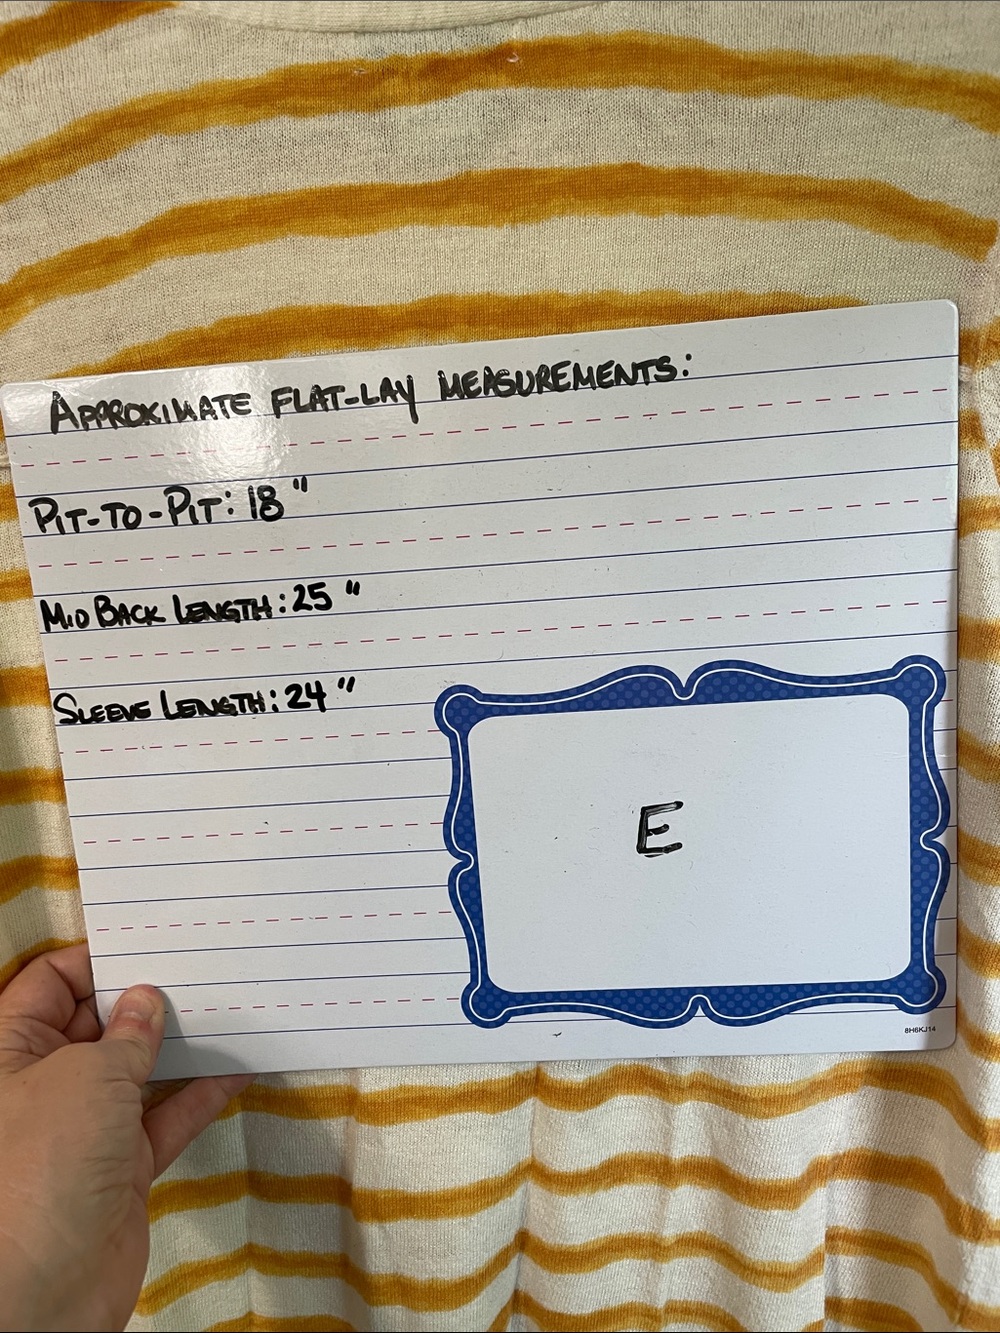 APPROXIMATE FLAT-LAY MEASUREMENTS:
PIT-TO-PIT: 18"
MID BACK LENGTH: 25"
SLEEVE LENGTH: 24"
E
8H6KJ14